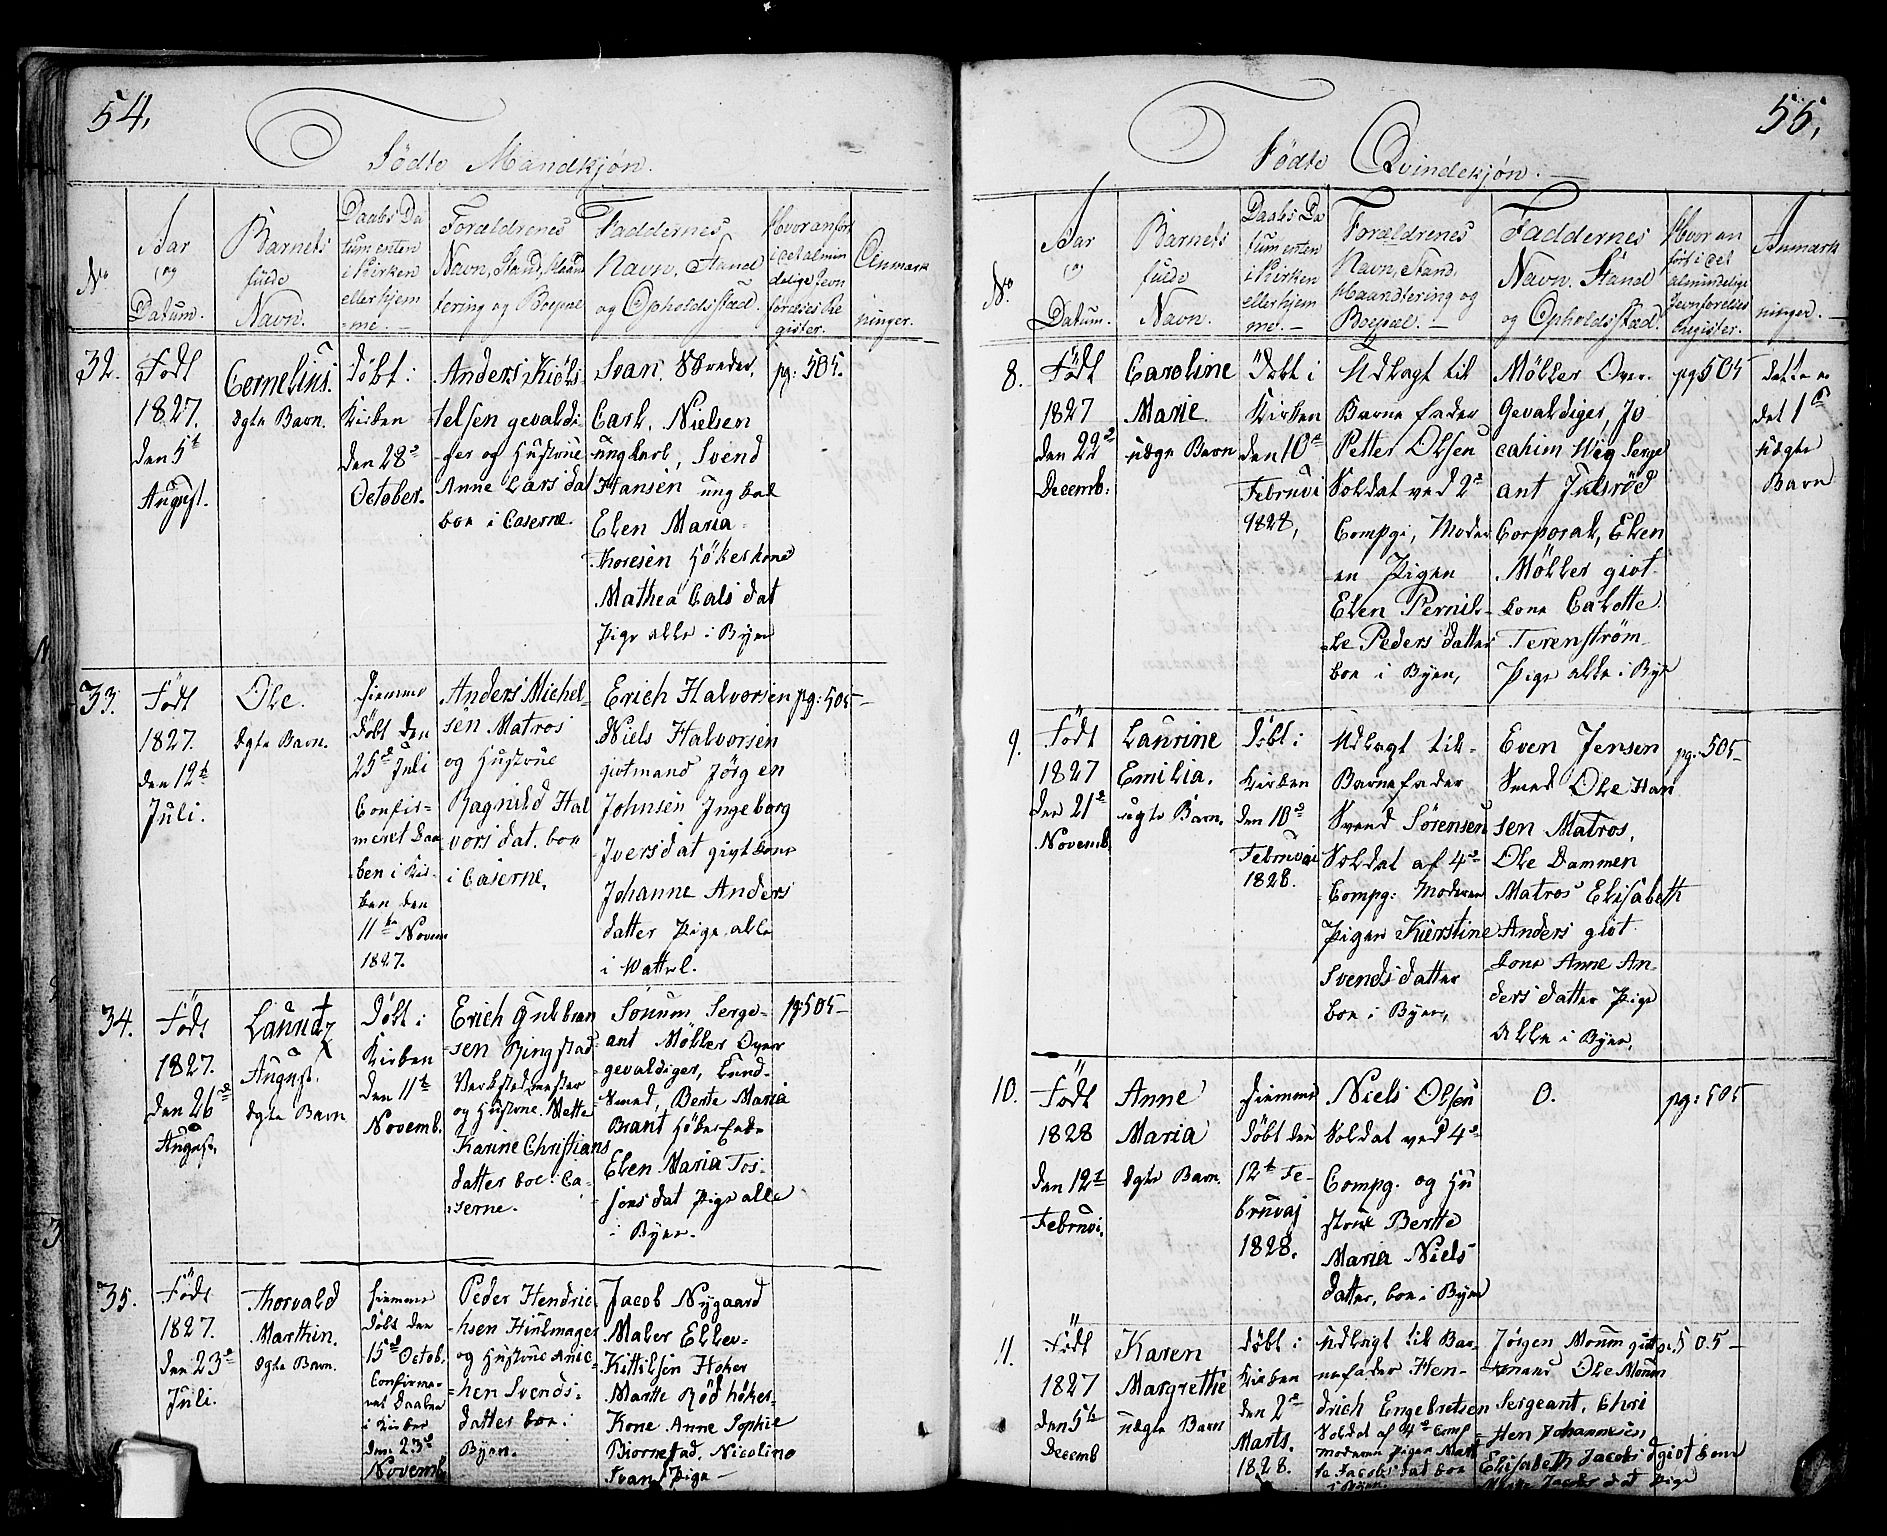 54.
Födte Mandkjön.
No
Aar
og
Datum.
Barnets
fulde
Navn.
Daabs Da
tum enten
i Kirken
eller hjem
me.
Forældrenes
Navn, Stand, Haand
tering og Boepæl
Faddernes
Navn, Stand
og Opholdsstæd.
Hvor anfört
i det almin
delige Jevn
förelses Re
gister.
Anmærk
ninger.
32.
Födt
1827.
den 5te
August.
Cornelius.
Ægte Barn.
Döbt i
Kirken
den 28de
October.
Anders Kiöls
telsen gevaldi
ger og Hustrue
Anne Lars dat
boe i Caserne.
Svan
Carl. Nielsen
ungkarl, Svend
Hansen ung kal
Elen Maria
Thoresen Hökerkone
Mathea Cals dat
Pige alle i Byen
pg: 505.
33.
Födt
1827.
den 12te
Juli.
Ole.
Ægte Barn.
Hiemme
Döbt den
25de Juli
Confir-
meret Daa
ben i Kir-
ken den
11te Novem
1827.
Anders Michel-
sen Matros
og Hustrue
Ragnild Hal
vors dat. boe
i Caserne.
Erich Halvorsen
Niels Halvorsen
giftmand Jörgen
Johnsen Ingeborg
Ivers dat givt kone
Johanne Anders
datter Pige alle
i
pg: 505-
34.
Födt
1827.
den 26de
August.
Lauridtz
August.
Ægte Barn
Döbt i
Kirken
den 11te
Novemb.
Erich Gulbran
sen Ringstad
Verkstedmester
og Hustrue. Mette
Karine Christians
datter boe i Ca-
serne.
Sörum Serge-
ant Möller Over
gevaldiger, Lund-
Smed, Berte Maria
Brant
Elen Maria Tos-
tens dat Pige alle
i Byen.
pg: 505-
35.
Födt
1827.
den 23de
Juli.
Thorvald
Marthin.
Ægte Barn.
Hiemme
Döbt den
15de Octob.
Confirme-
ret Daaben
i Kirken
den 23de
Novemb
Peder Hendric
hsen Hiulmager
og Hustrue Anic-
hen Svends-
datter boe i
Byen.
Jacob Nygaard
Maler Ellev-
Kittilsen Höker
Marthe Röd höker-
Kone Anne Sophie
Biornestad, Nicoline
Svan Pige
55.
Födte Qvindekjön.
No
Aar
og
Datum.
Barnets
fulde
Navn.
Daabs Da
tum enten
i Kirken
eller hjem
me.
Forældrenes
Navn, Stand,
Haandtering og
Boepæl.
Faddernes
Navn, Stand
og Opholdsstæd.
Hvor an
fört i det
almindelige
Jevnförelses
Register.
Anmærk
ninger.
8.
Födt
1827
den 22de
Decemb:
Caroline
Marie
uægte Barn
Döbt i
Kirken
den 10de
Februari
1828,
Udlagt til
Barnefader
Petter Olsen
Soldat ved 2de
Compgi, Moder
en Pigen
Elen Pernil-
le Peders datter
boe i Byen,
Möller Over
Gevaldiger, Jo
cahim Wig Serge
ant Julsröd
Corporal, Elen
Möller givt
kone Calotte
Terenström
Pige alle i Bye
pg 505
dette er
det 1te
uægte
Barn
9.
Födt
1827
den 21de
Novemb
Laurine
Emilia.
uægte Barn.
Döbt i
Kirken
den 10de
Februari
1828.
Udlagt til
Barnefader
Svend Sörensen
Soldat af 4de
Compg: Moderen
Pigen Kierstine
Svends datter
boe i Byen,
Even Jensen
Smed Ole Han
sen Matros,
Ole Dammen
Matros Elisabeth
Anders givt
kone Anne An-
ders datter Pige
Alle i Byen.
pg: 505-
10.
Födt
1828
den 12te
Februari.
Anne
Maria
Ægte Barn.
Hiemme
Döbt den
12te Fe-
bruaj
1828.
Niels Olsen
Soldat ved 4de
Compg. og Hu
strue Berthe
Maria Niels
datter, boe i Byen
0.
pg: 505
11.
Födt
1827
den 5te
Decemb
Karen
Margrethe
uægte Barn
Döbt i
Kirken
den 2de
Marts.
1828.
Udlagt til Bar-
nefader Hen-
drich Engebretsen
Soldat af 4de Comp
Moderen Pigen Mart
he Jacobs dat boe
i Byen.
Jörgen Moum gift
mand Ole Moum
Sergeant, Chri
sten Johannesen,
Elisabeth Jacobs d givt kone
Jacobs dat Pige
pg. 505-